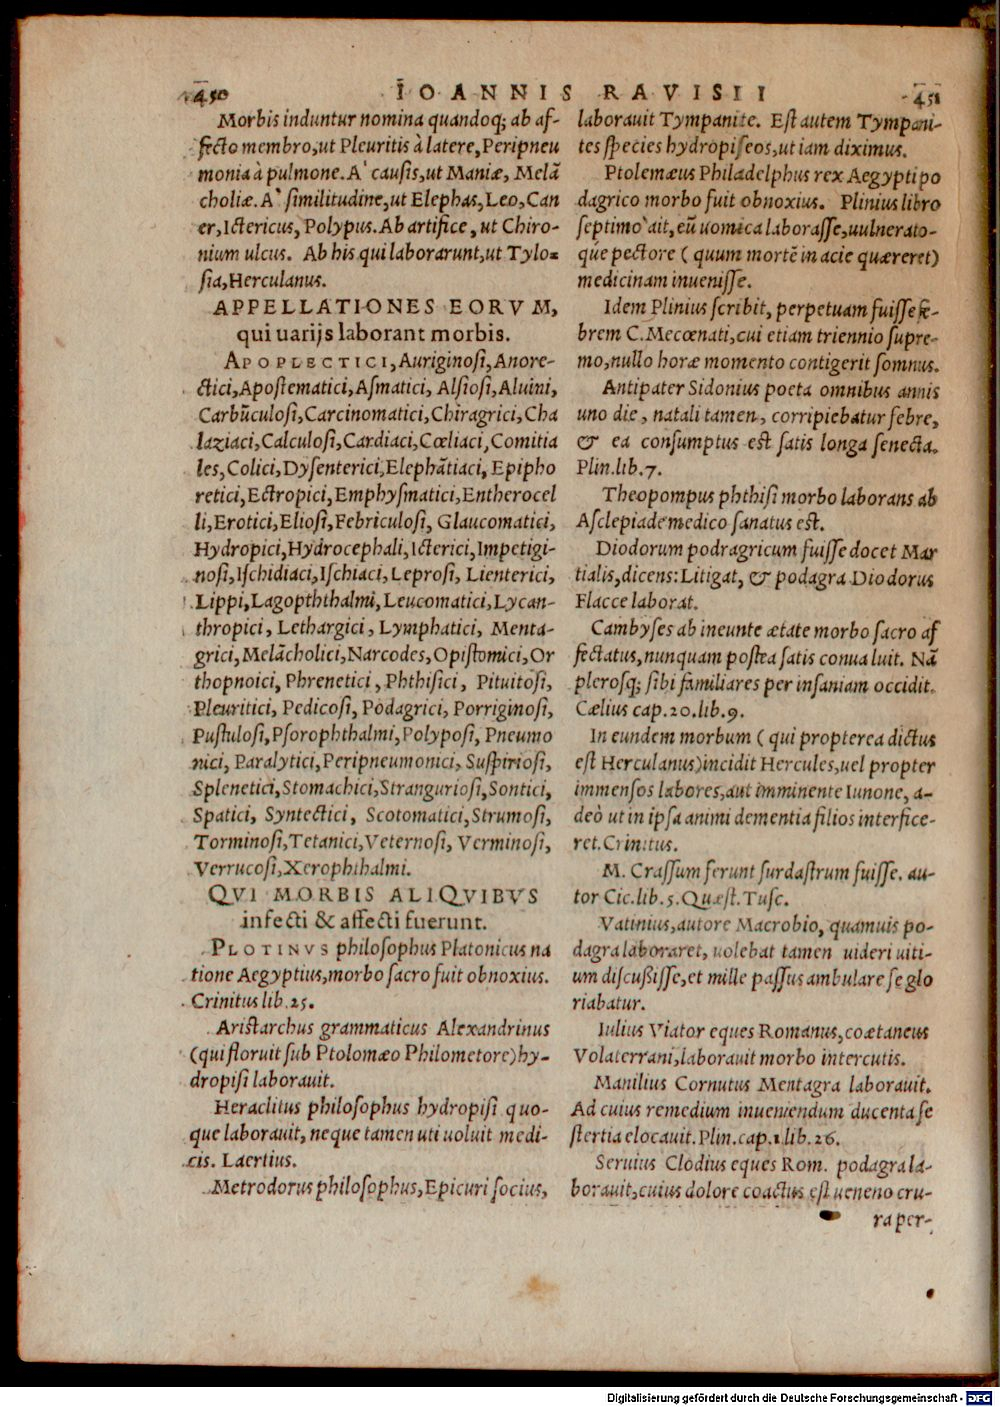 450
IOANNIS RAVISII
451
Morbis induntur nomina quandoq; ab af-
fecto membro, ut Pleuritis à latere, Peripneu
monia à pulmone. A' causis, ut Maniæ, Melā
choliæ. A' similitudine, ut Elephas, Leo, Can
er, Ictericus, Polypus. Ab artifice, ut Chiro-
nium ulcus. Ab his qui laborarunt, ut Tylo=
sia, Herculanus.
APPELLATIONES EORVM,
qui uarijs laborant morbis.
APOPLECTICI, Auriginosi, Anore-
ctici, Apostematici, Asmatici, Alsiosi, Aluini,
Carbūculosi, Carcinomatici, Chiragrici, Cha
laziaci, Calculosi, Cardiaci, Cœliaci, Comitia
les, Colici, Dysenterici, Elephātiaci, Epipho
retici, Ectropici, Emphysmatici, Entherocel
li, Erotici, Eliosi, Febriculosi, Glaucomatici,
Hydropici, Hydrocephali, Icterici, Impetigi-
nosi, Ischidiaci, Ischiaci, Leprosi, Lienterici,
Lippi, Lagophthalmi, Leucomatici, Lycan-
thropici, Lethargici, Lymphatici, Menta-
grici, Melācholici, Narcodes, Opistomici, Or
thopnoici, Phrenetici, Phthisici, Pituitosi,
Pleuritici, Pedicosi, Podagrici, Porriginosi,
Pustulosi, Psorophthalmi, Polyposi, Pneumo
nici, Paralytici, Peripneumonici, Suspiriosi,
Splenetici, Stomachici, Stranguriosi, Sontici,
Spatici, Syntectici, Scotomatici, Strumosi,
Torminosi, Tetanici, Veternosi, Verminosi,
Verrucosi, Xerophthalmi.
QVI MORBIS ALIQVIBVS
infecti & affecti fuerunt.
PLOTINVS philosophus Platonicus na
tione Aegyptius, morbo sacro fuit obnoxius.
Crinitus lib. 25.
Aristarchus grammaticus Alexandrinus
(qui floruit sub Ptolomæo Philometore) hy-
dropisi laborauit.
Heraclitus philosophus hydropisi quo-
que laborauit, neque tamen uti uoluit medi-
cis. Laertius.
Metrodorus philosophus, Epicuri socius,
laborauit Tympanite. Est autem Tympani-
tes species hydropiseos, ut iam diximus.
Ptolemæus Philadelphus rex Aegypti po
dagrico morbo fuit obnoxius. Plinius libro
septimo ait, eū uomica laborasse, uulnerato-
que pectore (quum mortē in acie quæreret)
medicinam inuenisse.
Idem Plinius scribit, perpetuam fuisse fe-
brem C. Mecœnati, cui etiam triennio supre-
mo, nullo horæ momento contigerit somnus.
Antipater Sidonius poeta omnibus annis
uno die, natali tamen, corripiebatur febre,
& ea consumptus est satis longa senecta.
Plin. lib. 7.
Theopompus phthisi morbo laborans ab
Asclepiade medico sanatus est.
Diodorum podragricum fuisse docet Mar
tialis, dicens: Litigat, & podagra Diodorus
Flacce laborat.
Cambyses ab ineunte ætate morbo sacro af
fectatus, nunquam postea satis conualuit. Nā
plerosq; sibi familiares per insaniam occidit.
Cælius cap. 20. lib. 9.
In eundem morbum (qui propterea dictus
est Herculanus) incidit Hercules, uel propter
immensos labores, aut imminente Iunone, a-
deò ut in ipsa animi dementia filios interfice-
ret. Crinitus.
M. Crassum ferunt surdastrum fuisse. au-
tor Cic. lib. 5. Quæst. Tusc.
Vatinius, autore Macrobio, quamuis po-
dagra laboraret, uolebat tamen uideri uiti-
um discußisse, et mille passus ambulare se glo
riabatur.
Iulius Viator eques Romanus, coætaneus
Volaterrani, laborauit morbo intercutis.
Manilius Cornutus Mentagra laborauit.
Ad cuius remedium inueniendum ducenta se
stertia elocauit. Plin. cap. 1. lib. 26.
Seruius Clodius eques Rom. podagra la-
borauit, cuius dolore coactus est ueneno cru-
ra per-
Digitalisierung gefördert durch die Deutsche Forschungsgemeinschaft - DFG